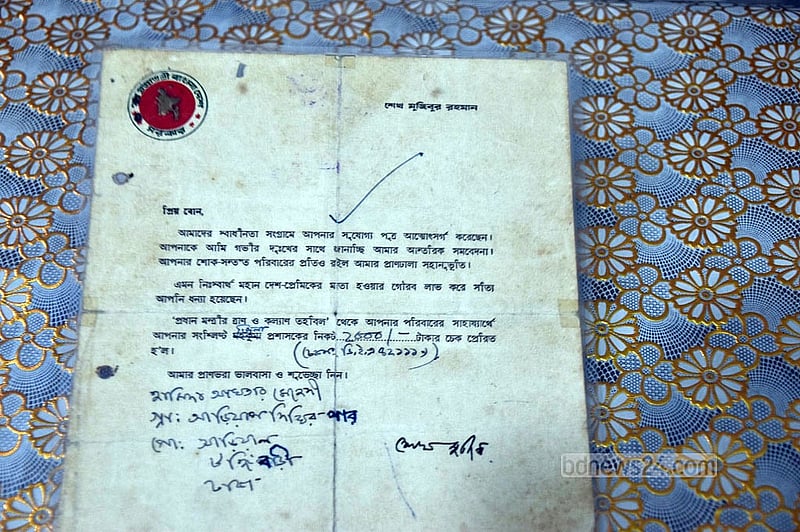 গণপ্রজাতন্ত্রী বাংলাদেশ
সরকার
শেখ মুজিবুর রহমান
প্রিয় বোন,
আমাদের স্বাধীনতা সংগ্রামে আপনার সুযোগ্য পুত্র আত্মোৎসর্গ করেছেন।
আপনাকে আমি গভীর দুঃখের সাথে জানাচ্ছি আমার আন্তরিক সমবেদনা।
আপনার শোক-সন্তপ্ত পরিবারের প্রতিও রইল আমার প্রাণঢালা সহানুভূতি।
এমন নিঃস্বার্থ মহান দেশ-প্রেমিকের মাতা হওয়ার গৌরব লাভ করে সত্যি
আপনি ধন্যা হয়েছেন।
'প্রধান মন্ত্রীর ত্রাণ ও কল্যাণ তহবিল' থেকে আপনার পরিবারের সাহায্যার্থে
আপনার সংশ্লিষ্ট প্রশাসকের নিকট ২০০০/- টাকার চেক প্রেরিত
হ'ল।
আমার প্রাণভরা ভালবাসা ও শুভেচ্ছা নিন।
পো:
ঢাকা
শেখ মুজিব
bdnews24.com